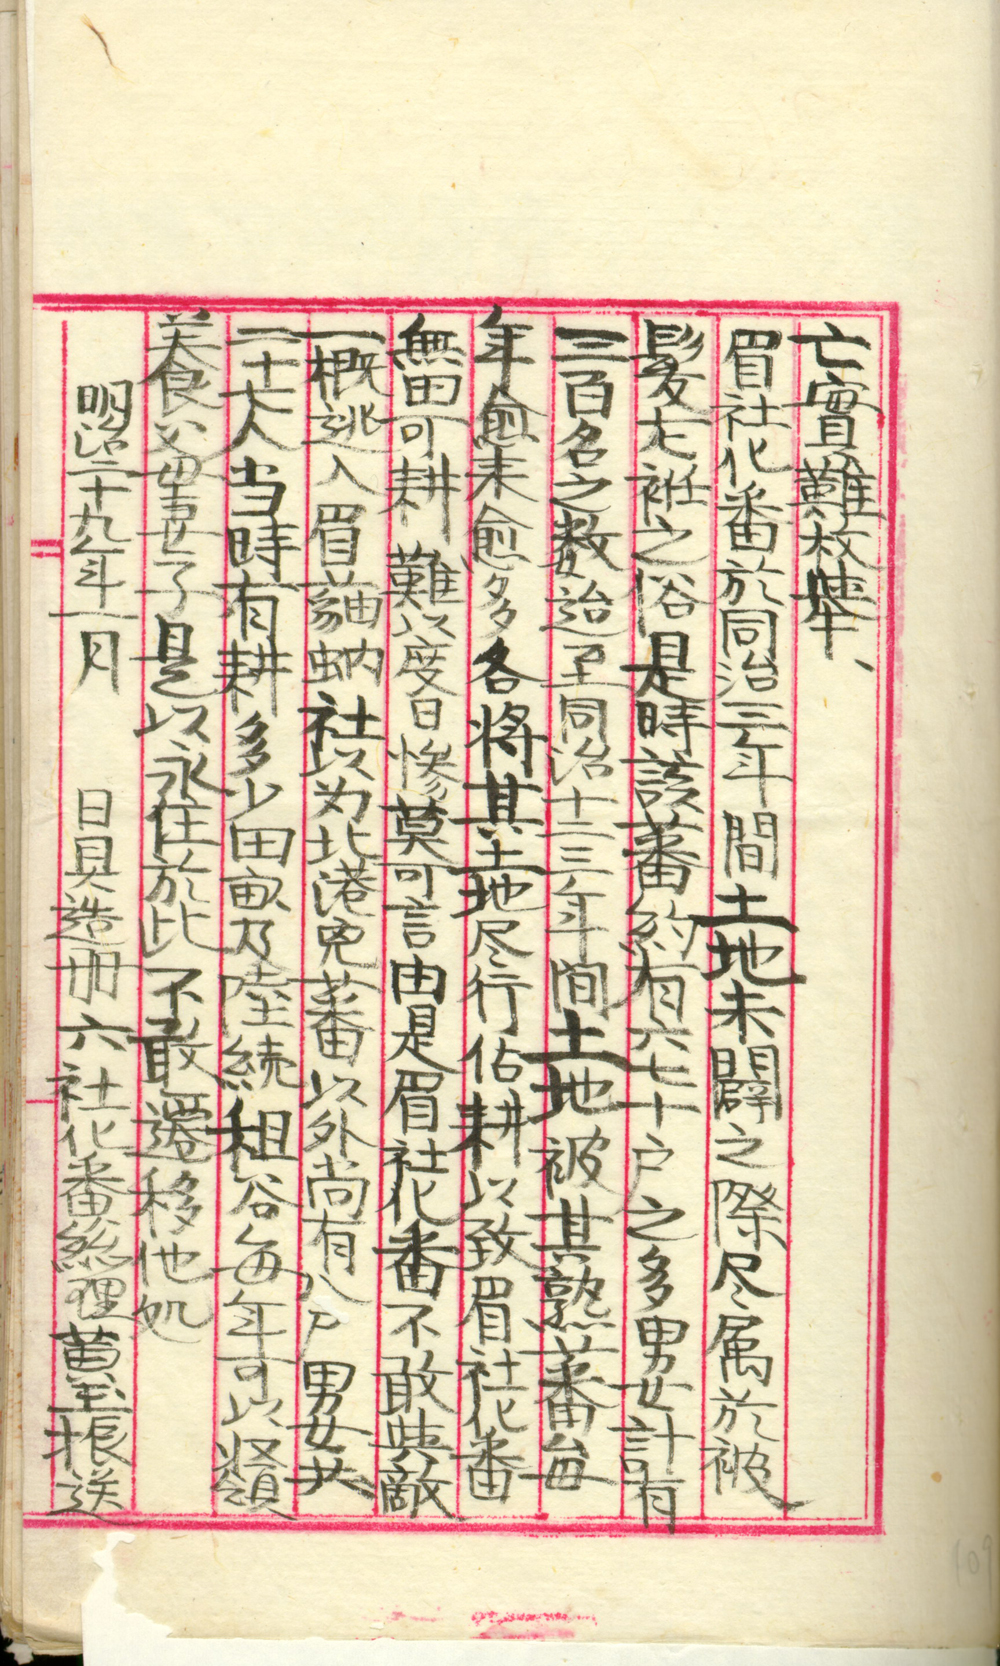 亡實難枚举、
眉社化番於同治三年間土地未闢之際尽属於被
髪左袵之俗是時該蕃約有六七十户之多男女計有
二百名之数迨至同治十三年間土地被其熟蕃每
年愈来愈多各将其土地尽行佔耕以致眉社化番
無田可耕難以度日惨莫可言由是眉社化番不敢典敵
一概逃入眉貓蚋社以为北港鬼蕃以外尚有八户男女共
二十七人当時有耕多少田畝及陸続租谷每年可以
養食父母妻子是以永住於此不敢遷移他処
明治二十九年一月　日具造冊六社化番総理黄玉振送